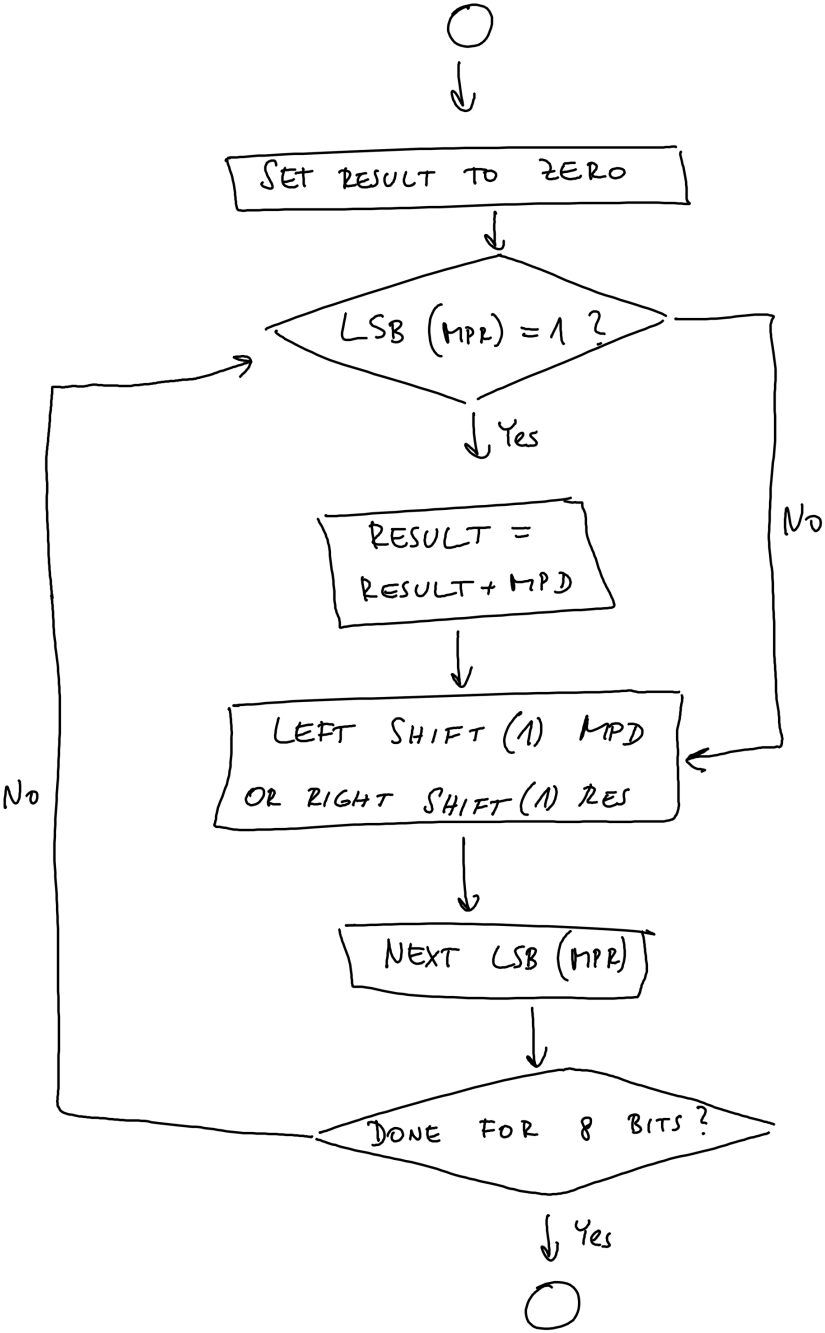 SET RESULT TO ZERO
LSB (MPR) = 1 ?
Yes
No
RESULT =
RESULT + MPD
LEFT SHIFT (1) MPD
OR RIGHT SHIFT (1) RES
No
NEXT LSB (MPR)
DONE FOR 8 BITS?
Yes